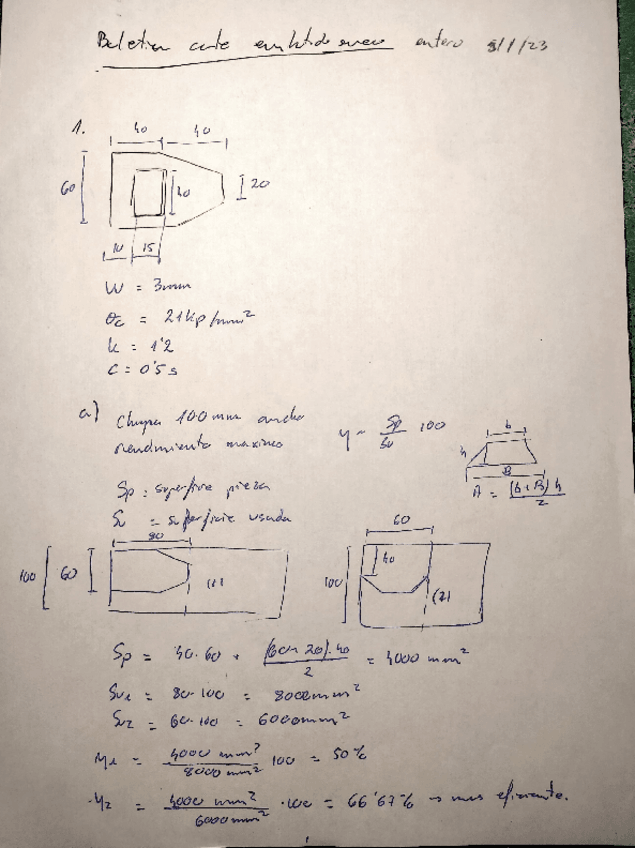 Boletin corte embutido enero 5/1/23
1.
40 40
60 40 20
10 15
W = 3mm
σc = 21kp/mm²
k = 1'2
C = 0'5 s
a) Chapa 100mm ancho
rendimiento maximo
η = Sp/Su 100
b
h
B
A = (b+B)h/2
Sp: superficie pieza
Su = superficie usada
80 60
100 60 (1) 100 40 (2)
Sp = 40·60 + (60+20)·40/2 = 4000 mm²
Su1 = 80·100 = 8000mm²
Su2 = 60·100 = 6000mm²
η1 = 4000 mm²/8000 mm² 100 = 50%
η2 = 4000 mm²/6000 mm² ·100 = 66'67% → mas eficiente.